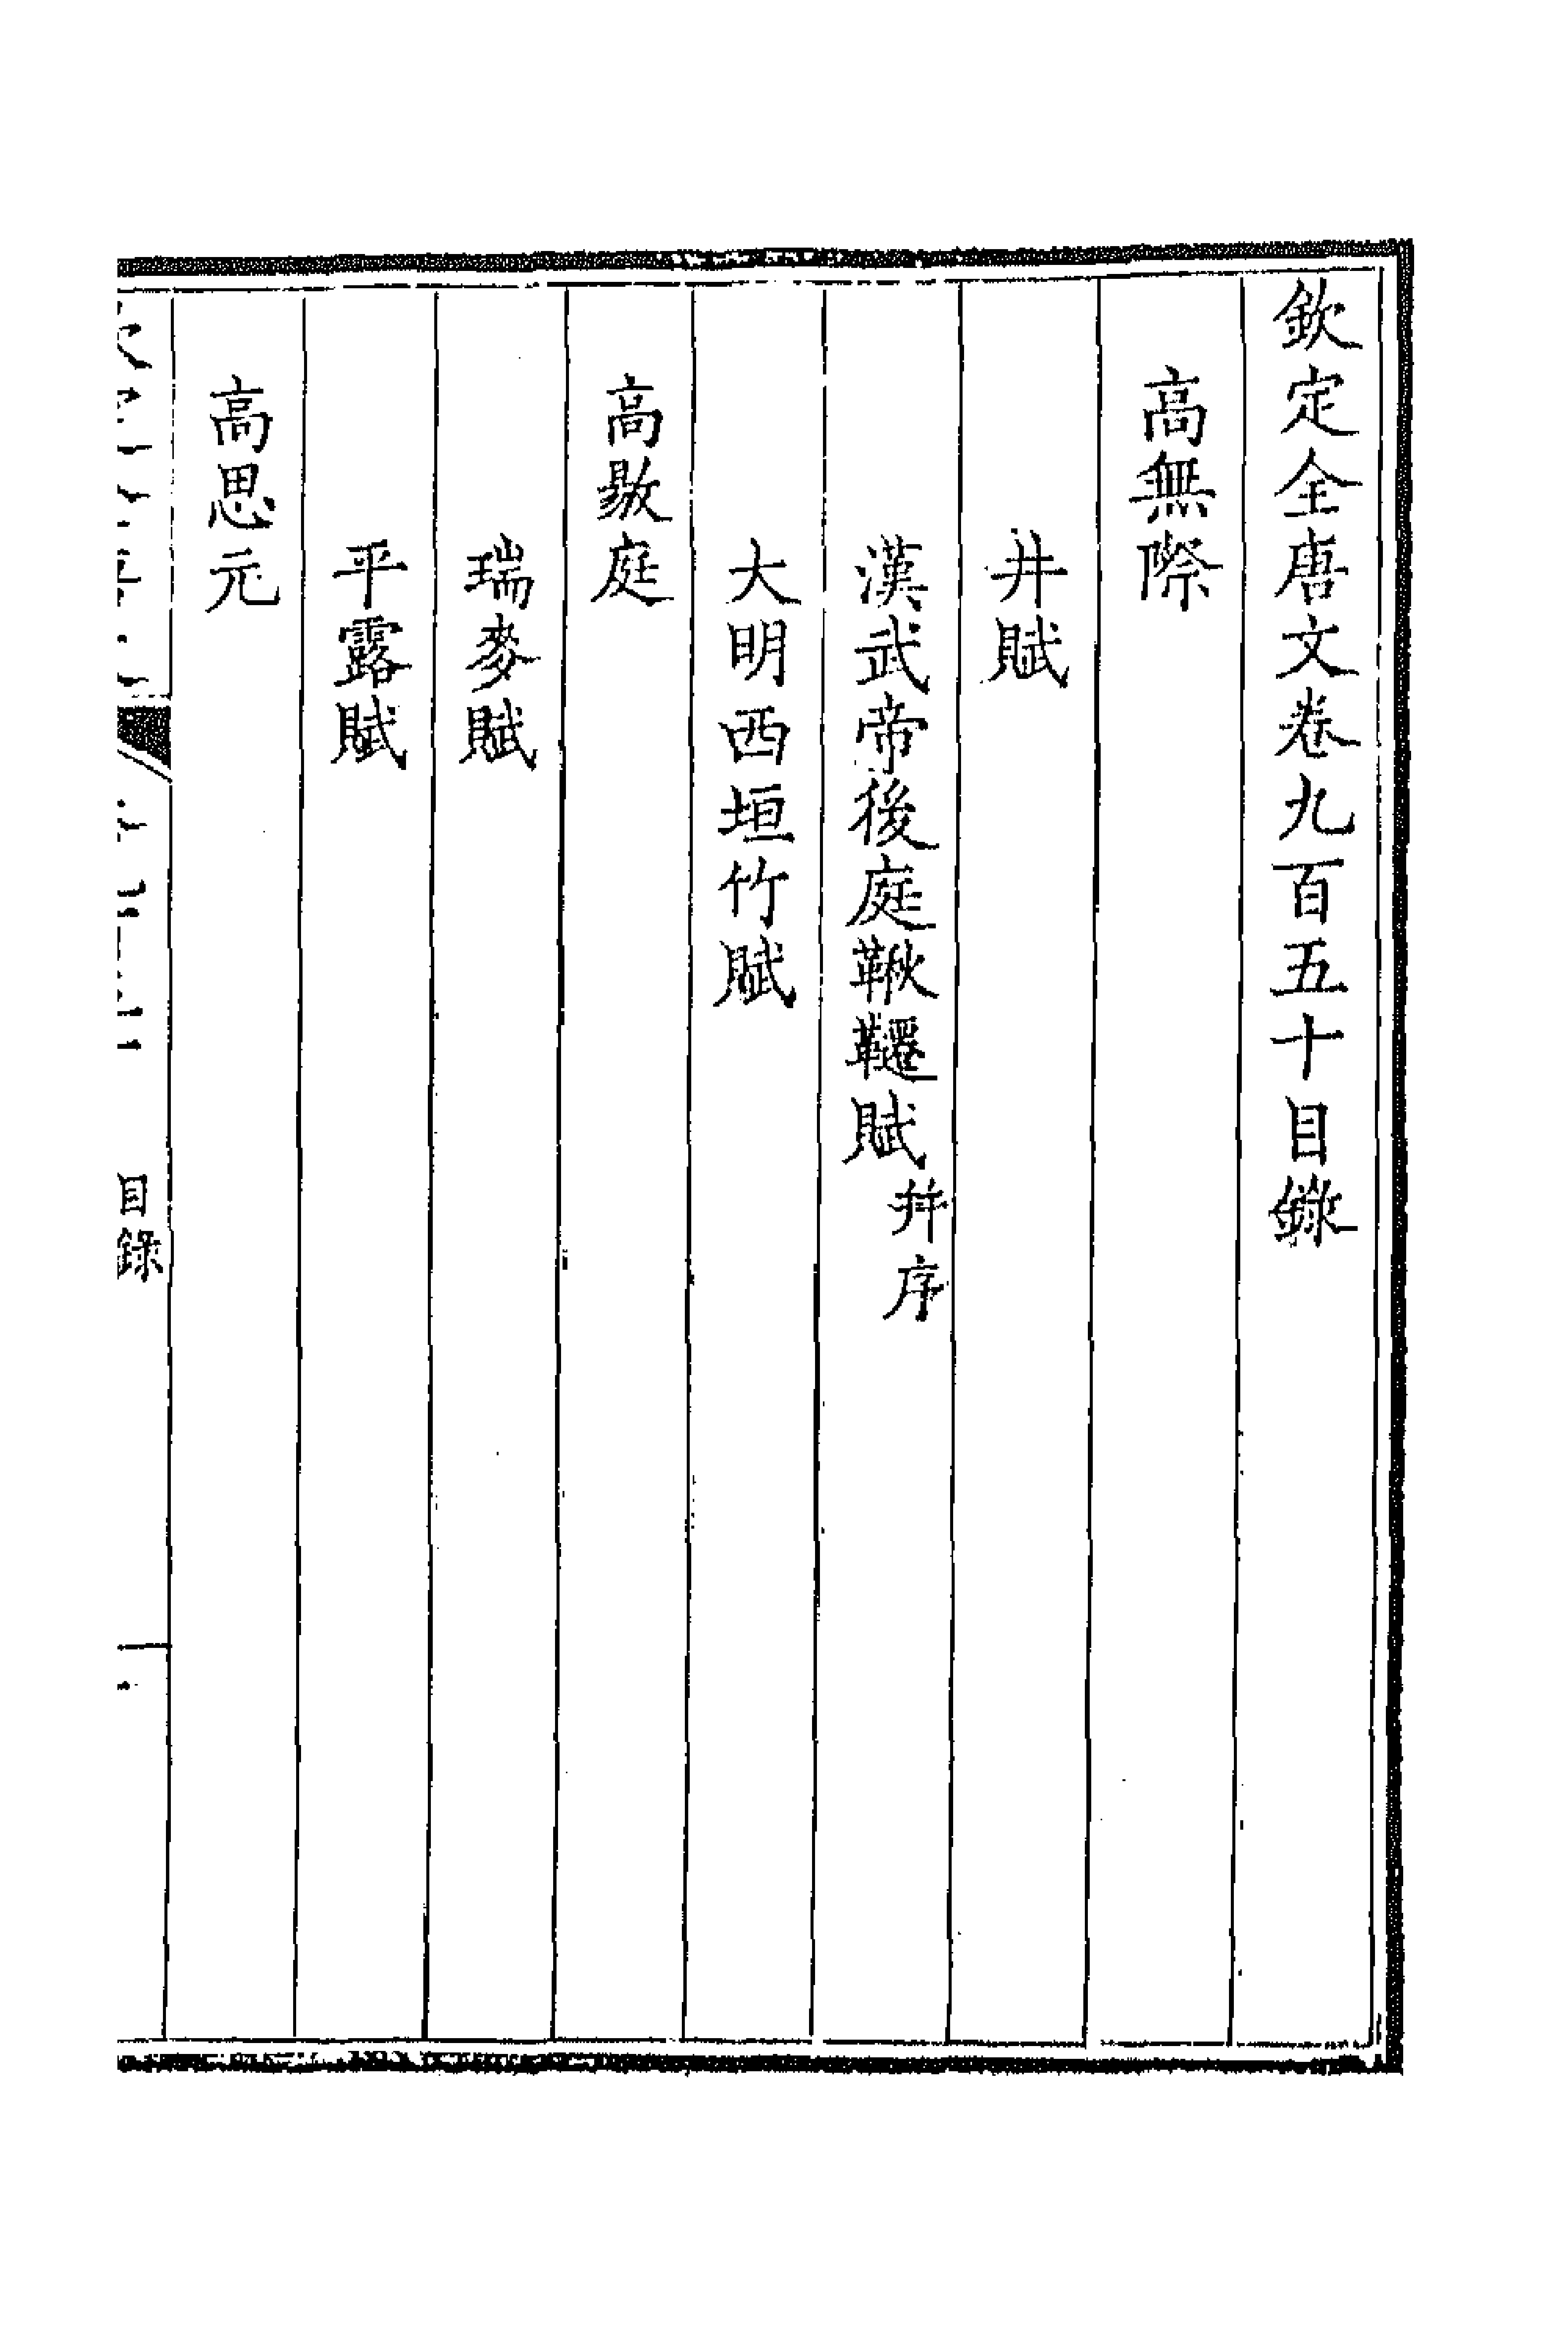 欽定全唐文卷九百五十目錄
高無際
井賦
漢武帝後庭鞦韆賦并序
大明西垣竹賦
高敭庭
瑞麥賦
平露賦
高思元
目錄